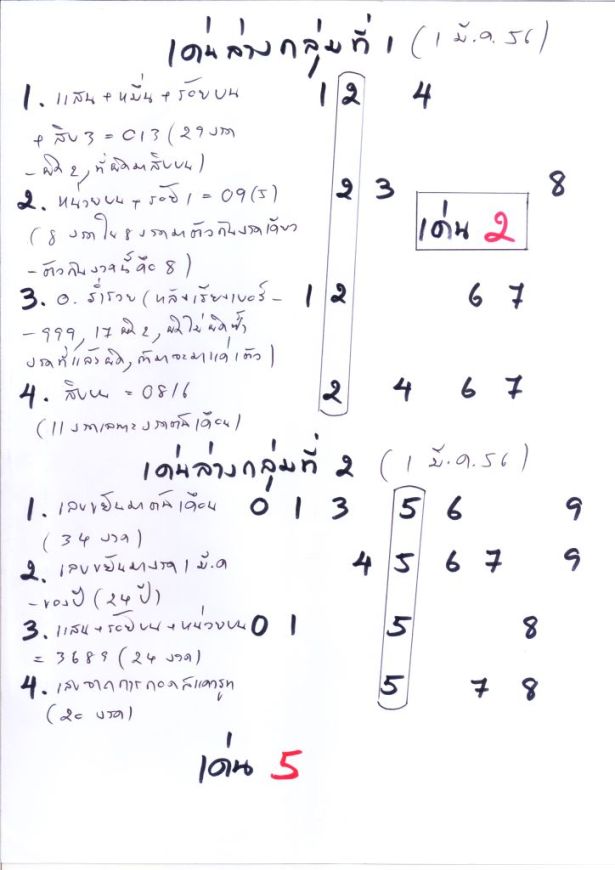 เด่นล่างกลุ่มที่ 1 (1 มี.ค. 56)
1. แสน + หมื่น + ร้อยบน 1 2 4
+ สิบ 3 = C13 (29 งวด
- ผิด 2, ที่ผิดมาสิบบน)
2. หน่วยบน + ร้อย 1 = 09(5) 2 3 8
(8 งวดใน 8 งวดมาตัวกันงวดเดียว เด่น 2
- ตัวกันงวดนี้คือ 8)
3. อ. ร่ำรวย (หลังเรียงเบอร์ - 1 2 6 7
- 999, 17 ผิด 2, ผิดไม่ผิดซ้ำ
งวดที่แล้วผิด,
4. สิบบน = 0816 2 4 6 7
(11 งวดเฉพาะงวดต้นเดือน)
เด่นล่างกลุ่มที่ 2 (1 มี.ค. 56)
1. เลขขยันมาต้นเดือน 0 1 3 5 6 9
(34 งวด)
2. เลขขยันมางวด 1 มี.ค 4 5 6 7 9
- ของปี (24 ปี)
3. แสน + ร้อยบน + หน่วยบน 0 1 5 8
= 3689 (24 งวด)
4. เลขจากการถอดสแควรูท 5 7 8
(20 งวด)
เด่น 5